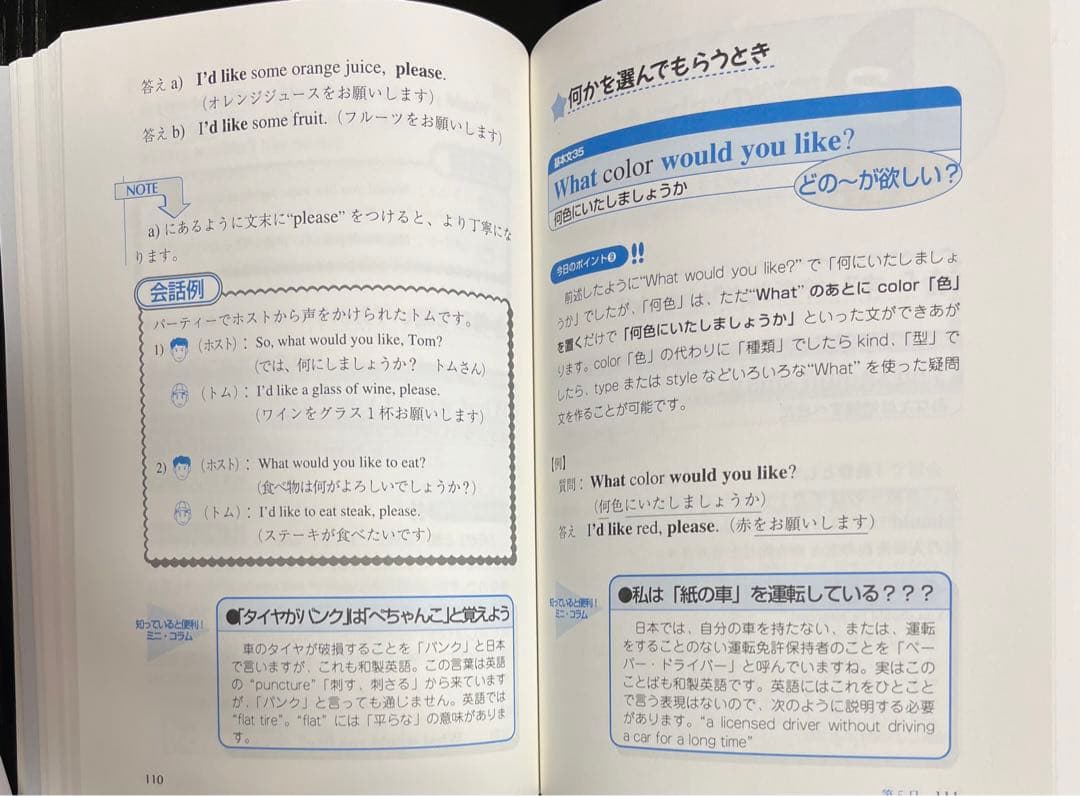 答え a) I'd like some orange juice, please.
(オレンジジュースをお願いします)
答え b) I'd like some fruit. (フルーツをお願いします)
NOTE
a) にあるように文末に“please” をつけると、より丁寧にな
ります。
会話例
パーティーでホストから声をかけられたトムです。
1) (ホスト): So, what would you like, Tom?
(では、何にしましょうか? トムさん)
(トム): I'd like a glass of wine, please.
(ワインをグラス1杯お願いします)
2) (ホスト): What would you like to eat?
(食べ物は何がよろしいでしょうか?)
(トム): I'd like to eat steak, please.
(ステーキが食べたいです)
知っていると便利!
ミニ・コラム
●「タイヤがパンク」は「ぺちゃんこ」と覚えよう
車のタイヤが破損することを「パンク」と日本
で言いますが、これも和製英語。この言葉は英語
の “puncture”「刺す、刺さる」から来ています
が、「パンク」と言っても通じません。英語では
“flat tire”。“flat” には「平らな」の意味がありま
す。
110
何かを選んでもらうとき
基本文35
What color would you like?
何色にいたしましょうか
どの〜が欲しい?
今日のポイント⑨
前述したように“What would you like?” で「何にいたしましょ
うか」でしたが、「何色」は、ただ“What” のあとに color「色」
を置くだけで「何色にいたしましょうか」といった文ができあが
ります。color「色」の代わりに「種類」でしたら kind、「型」で
したら、type または style などいろいろな“What” を使った疑問
文を作ることが可能です。
【例】
質問: What color would you like?
(何色にいたしましょうか)
答え I'd like red, please. (赤をお願いします)
知っていると便利!
ミニ・コラム
●私は「紙の車」を運転している???
日本では、自分の車を持たない、または、運転
をすることのない運転免許保持者のことを「ペー
パー・ドライバー」と呼んでいますね。実はこの
ことばも和製英語です。英語にはこれをひとこと
で言う表現はないので、次のように説明する必要
があります。“a licensed driver without driving
a car for a long time”